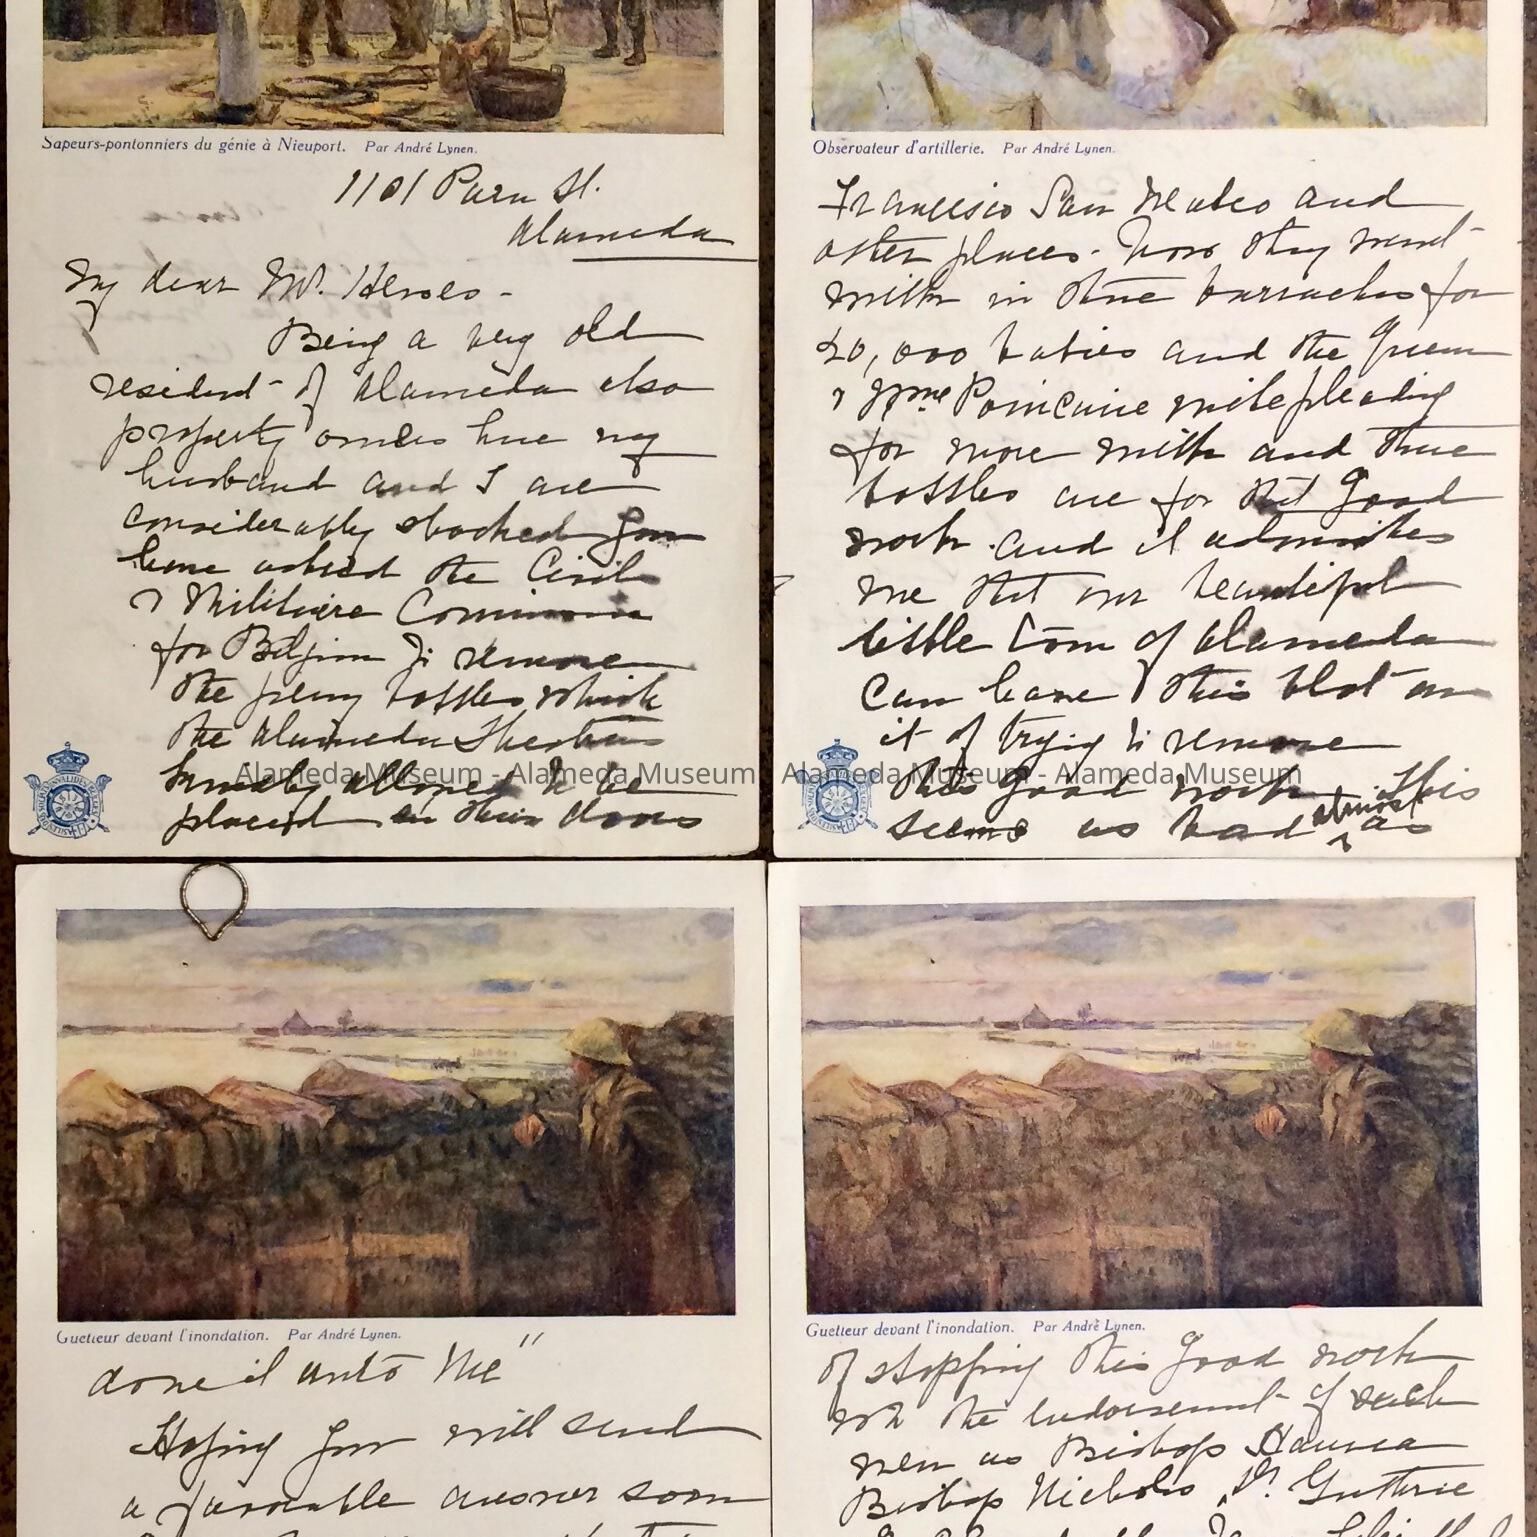 Sapeurs-pontonniers du génie à Nieuport. Par André Lynen.
1101 Paru St.
Alameda
My dear Mr.
Being a very old
resident of Alameda also
property here my
husband and I are
considerably shocked you
have asked the Civil
& Militaire
for Belgium to remove
the penny bottles which
the Alameda Theatres
kindly allowed to be
placed in their doors
Observateur d'artillerie. Par André Lynen.
Francisco San Mateo and
other places. Now they send
milk in three barracks for
20,000 babies and the Queen
& Mme Poincaire write pleading
for more milk and these
bottles are for that good
work and it
me that our beautiful
little town of Alameda
can have this blot on
it of trying to remove
this good work This
seems as bad almost as
Alameda Museum - Alameda Museum - Alameda Museum - Alameda Museum
Guetteur devant l'inondation. Par André Lynen.
done it unto Me"
Hoping you will send
a favorable answer soon
Guetteur devant l'inondation. Par André Lynen.
of stopping this good work
with the endorsement of such
men as Bishop Hanna
Bishop Nichols, Dr. Guthrie